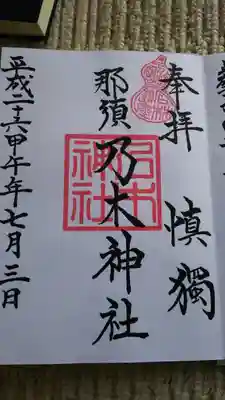 奉拝
慎獨
那須乃木神社
乃木神社
平成二十六甲午年七月三日